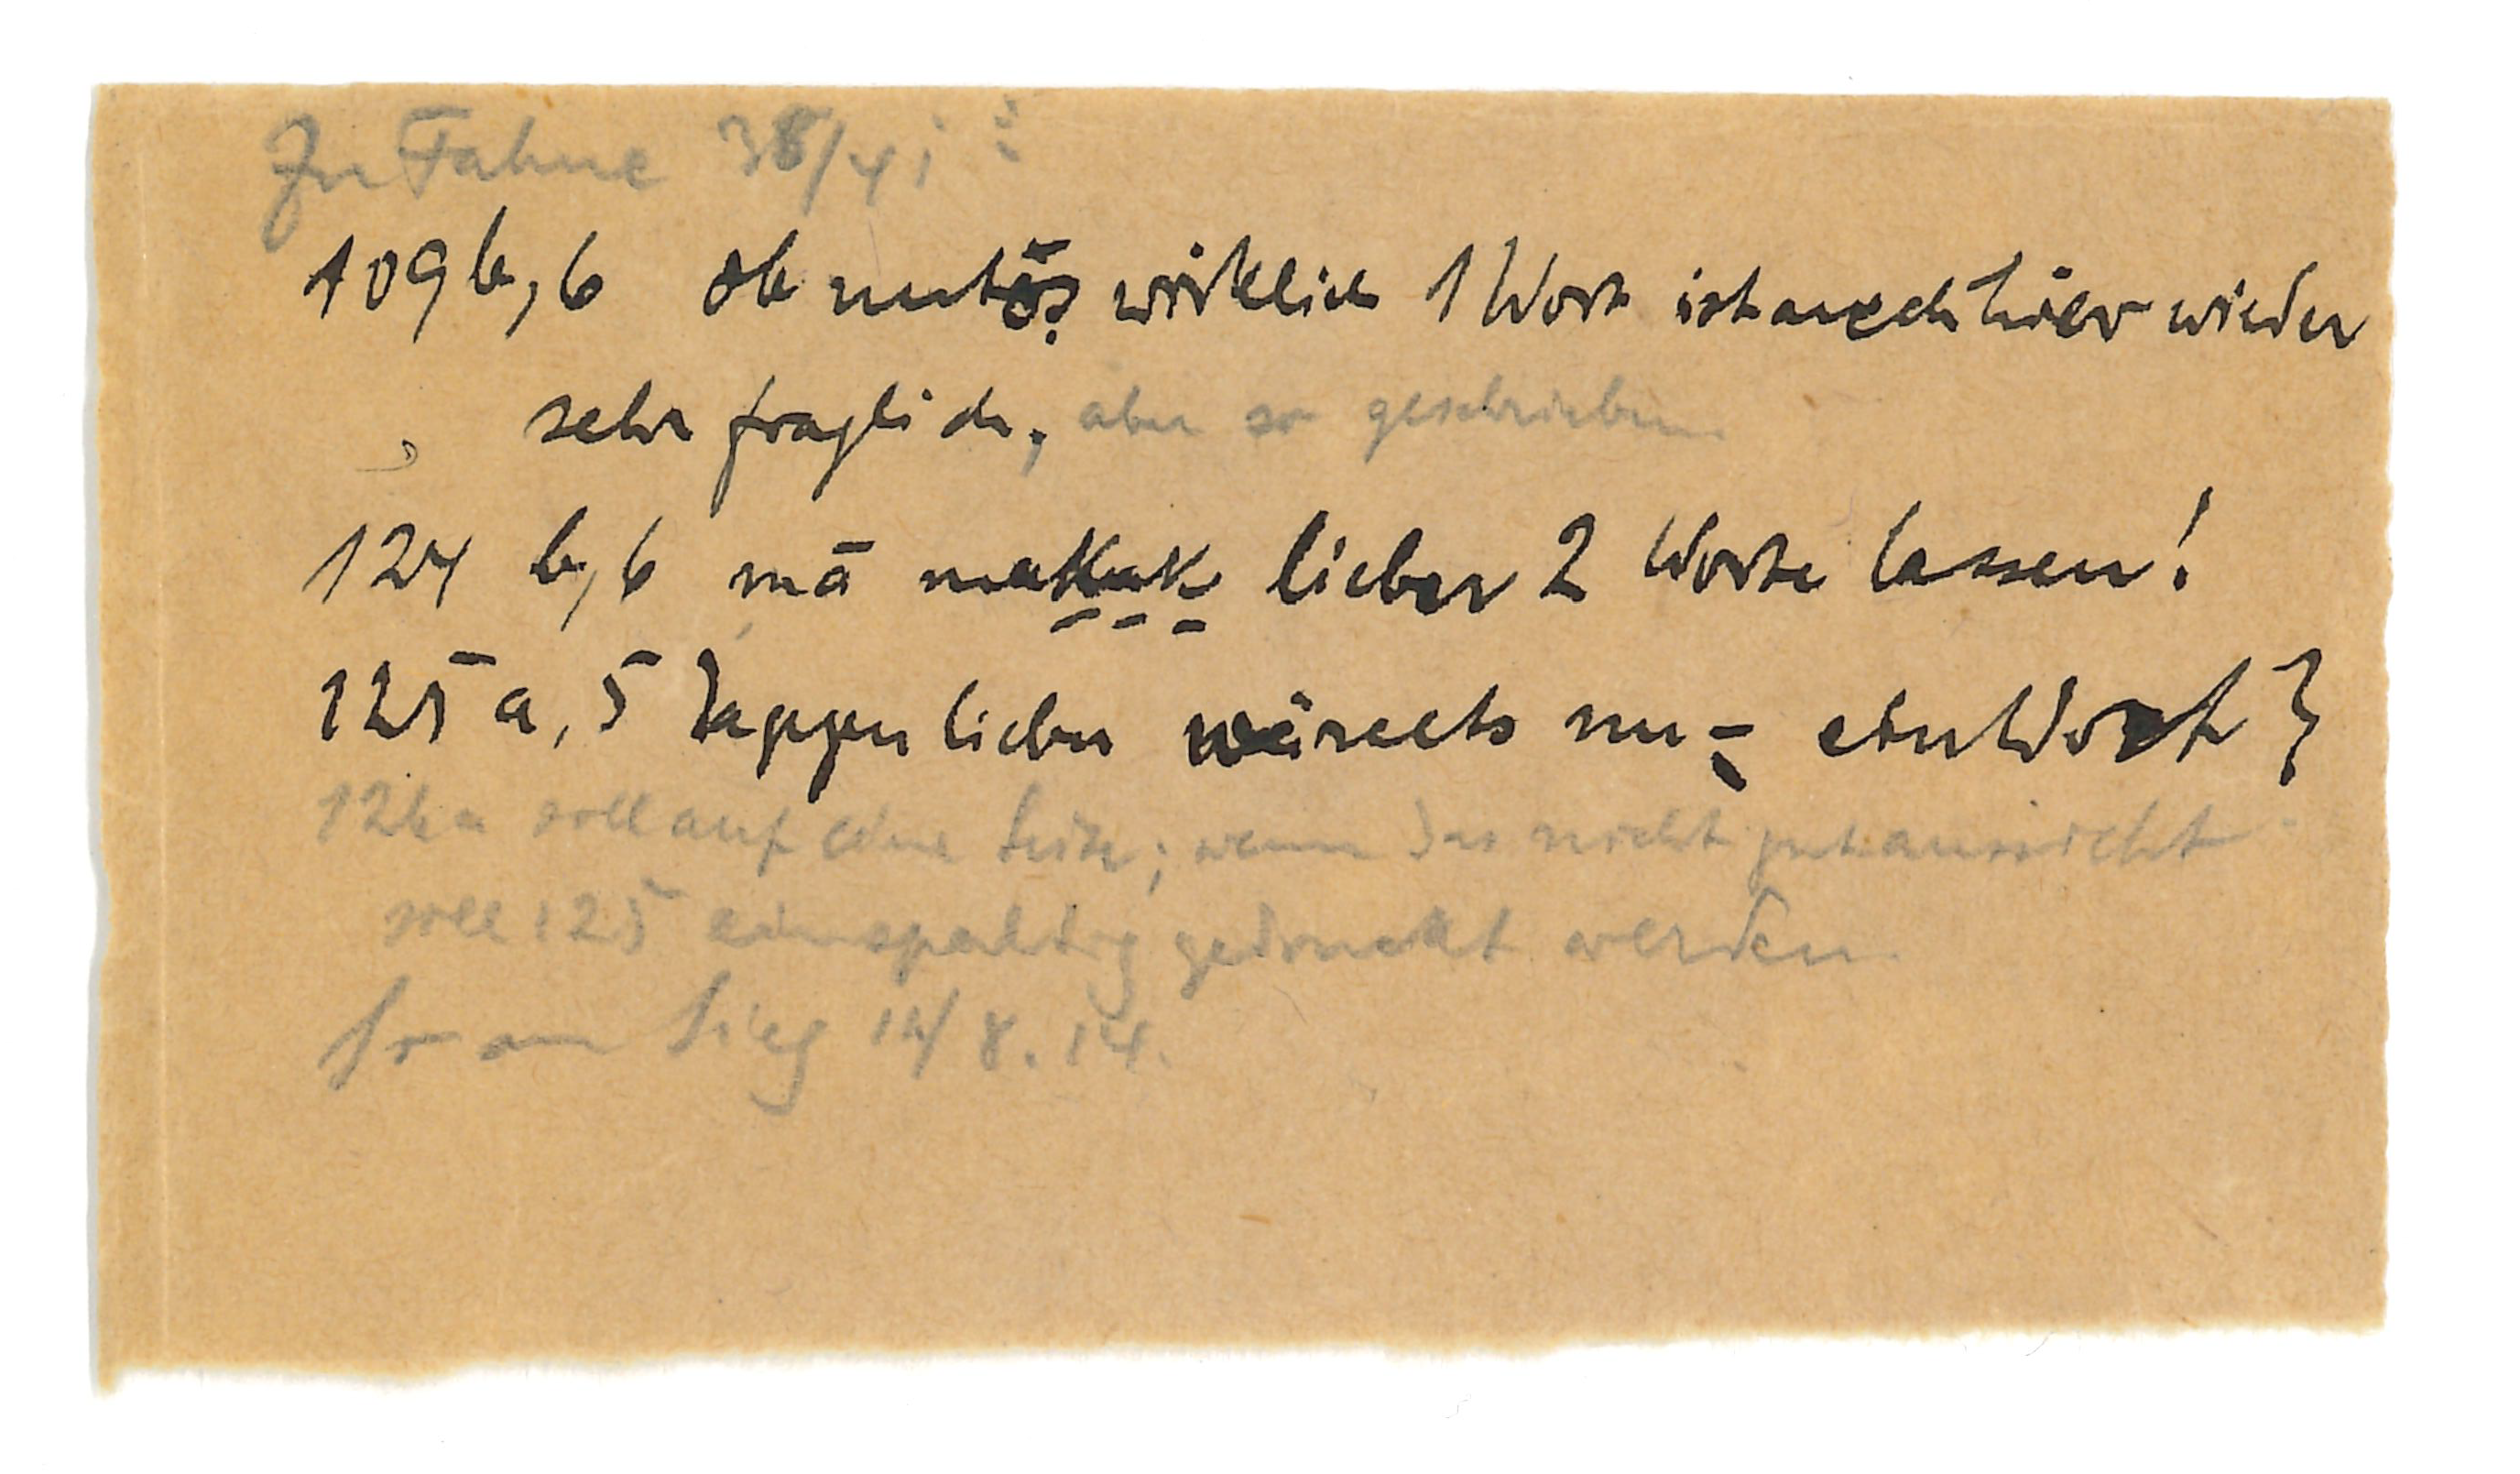 Zu Fahne 38/41:
109b,6 Ob wirklich 1 Wort ist auch hier wieder
sehr fraglich, aber so geschrieben
124 b,6 mā makak lieber 2 Worte lassen!
125 a,5 dagegen lieber ein Wort
soll auf eine Seite; wenn das nicht gut aussieht
soll 125 einspaltig gedruckt werden
14/8.14.